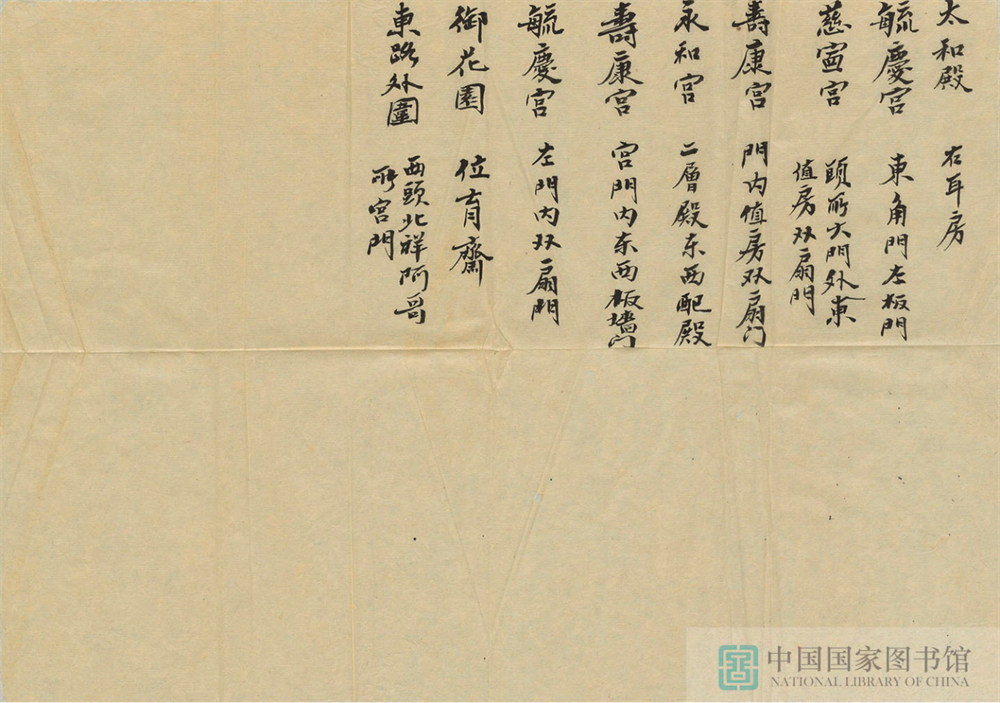 太和殿 右耳房
毓慶宮 東角門左板門
慈寍宮 頭所大門外東
值房双扇門
壽康宮 門内值房双扇门
永和宮 二層殿东西配殿
壽康宮 宮門内东西板墻门
毓慶宮 左門内双扇門
御花園 位育齋
東路外圍 西頭北祥阿哥
所宮門
中国国家图书馆
NATIONAL LIBRARY OF CHINA